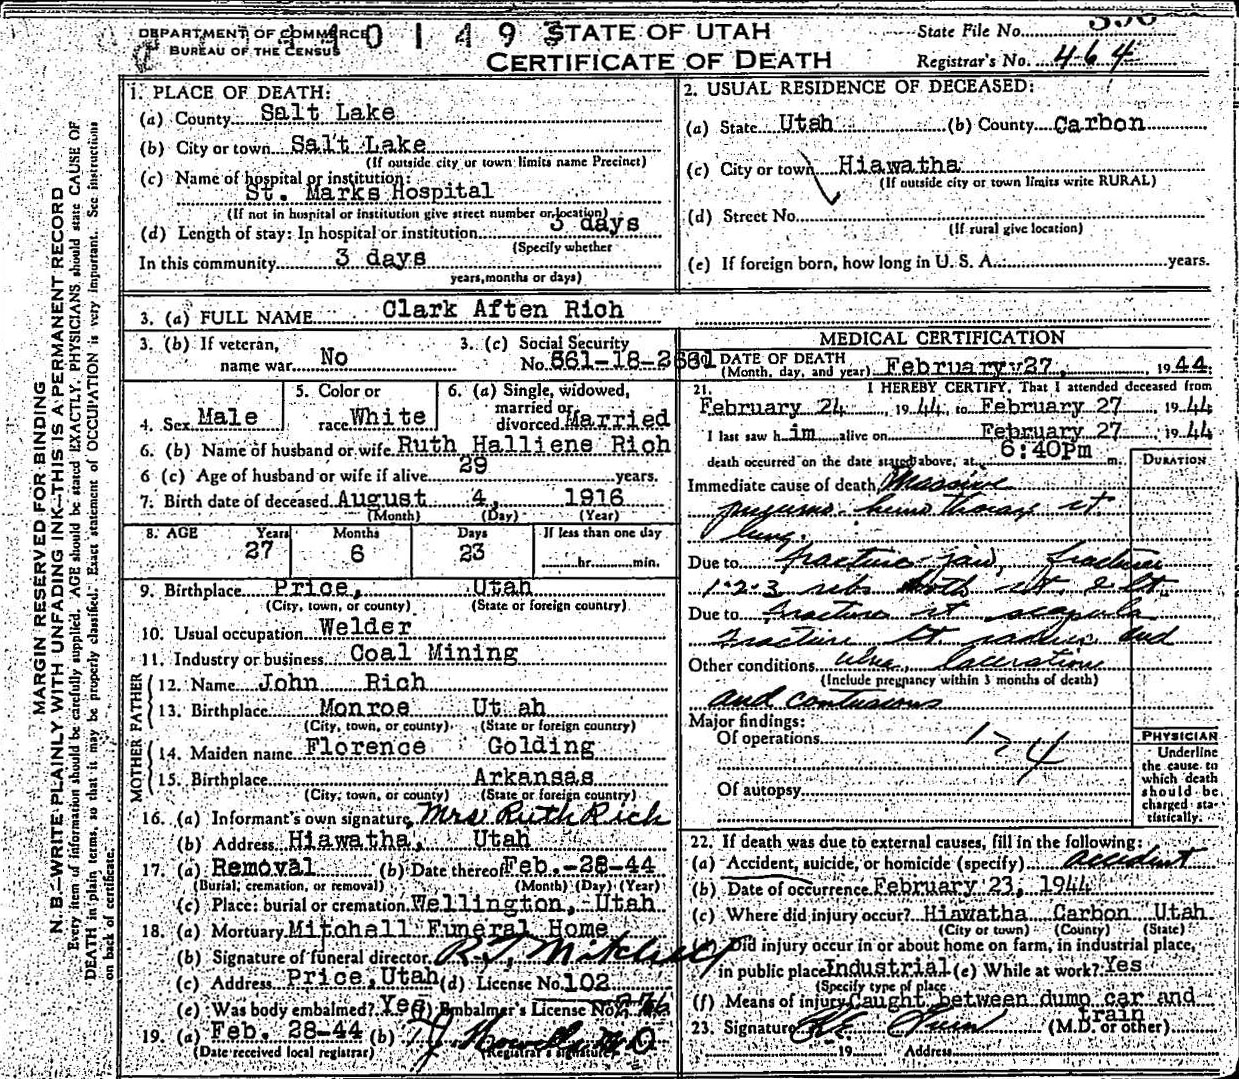 DEPARTMENT OF COMMERCE
BUREAU OF THE CENSUS
STATE OF UTAH
CERTIFICATE OF DEATH
State File No.
Registrar's No. 464
MARGIN RESERVED FOR BINDING
N. B.—WRITE PLAINLY WITH UNFADING INK—THIS IS A PERMANENT RECORD
Every item of information should be carefully supplied. AGE should be stated EXACTLY. PHYSICIANS should state CAUSE OF
DEATH in plain terms, so that it may be properly classified. Exact statement of OCCUPATION is very important. See instructions
on back of certificate.
1. PLACE OF DEATH:
(a) County Salt Lake
(b) City or town Salt Lake
(If outside city or town limits name Precinct)
(c) Name of hospital or institution:
St. Marks Hospital
(If not in hospital or institution give street number or location)
(d) Length of stay: In hospital or institution 3 days
(Specify whether
In this community 3 days
years, months or days)
2. USUAL RESIDENCE OF DECEASED:
(a) State Utah (b) County Carbon
(c) City or town Hiawatha
(If outside city or town limits write RURAL)
(d) Street No.
(If rural give location)
(e) If foreign born, how long in U. S. A. years.
3. (a) FULL NAME Clark Aften Rich
3. (b) If veteran,
name war No
3. (c) Social Security
No.
4. Sex Male
5. Color or
race White
6. (a) Single, widowed,
married or
divorced Married
6. (b) Name of husband or wife Ruth Halliene Rich
6 (c) Age of husband or wife if alive 29 years.
7. Birth date of deceased August 4, 1916
(Month) (Day) (Year)
8. AGE Years Months Days If less than one day
27 6 23 hr. min.
9. Birthplace Price, Utah
(City, town, or county) (State or foreign country)
10. Usual occupation Welder
11. Industry or business Coal Mining
FATHER
12. Name John Rich
13. Birthplace Monroe Utah
(City, town, or county) (State or foreign country)
MOTHER
14. Maiden name Florence Golding
15. Birthplace Arkansas
(City, town, or county) (State or foreign country)
16. (a) Informant's own signature Mrs Ruth Rich
(b) Address Hiawatha, Utah
17. (a) Removal (b) Date thereof Feb.-28-44
(Burial, cremation, or removal) (Month) (Day) (Year)
(c) Place: burial or cremation Wellington, Utah
18. (a) Mortuary Mitchell Funeral Home
(b) Signature of funeral director
(c) Address Price, Utah (d) License No. 102
(e) Was body embalmed? Yes Embalmer's License No. 276
19. (a) Feb. 28-44 (b)
(Date received local registrar) (Registrar's signature)
MEDICAL CERTIFICATION
20. DATE OF DEATH
(Month, day, and year) February 27, 1944
21. I HEREBY CERTIFY, That I attended deceased from
February 24, 1944, to February 27 1944
I last saw him alive on February 27 1944
death occurred on the date stated above, at 6:40Pm m.
DURATION
Immediate cause of death Massive
pneumo hemo thorax rt
lung.
Due to fracture jaw, fracture
1-2-3 ribs both rt. & lt.
Due to fracture rt scapula
fracture lt radius and
Other conditions ulna, laceration
(Include pregnancy within 3 months of death)
and contusions
Major findings:
Of operations
Of autopsy
PHYSICIAN
Underline
the cause to
which death
should be
charged sta-
tistically.
22. If death was due to external causes, fill in the following:
(a) Accident, suicide, or homicide (specify) accident
(b) Date of occurrence February 23, 1944
(c) Where did injury occur? Hiawatha Carbon Utah
(City or town) (County) (State)
Did injury occur in or about home on farm, in industrial place,
in public place Industrial (e) While at work? Yes
(Specify type of place
(f) Means of injury Caught between dump car and
train
23. Signature (M.D. or other)
19 Address